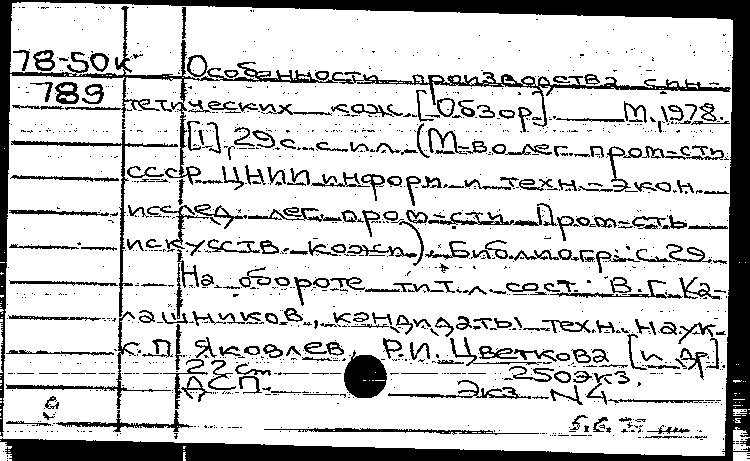 78-50к Особенности производства син-
789 тетических кож. [Обзор]. М., 1978.
[1], 29 с. с ил. (М-во лег. пром-сти
СССР ЦНИИ информ. и техн.-экон.
исслед. лег. пром-сти. Пром-сть
искусств. кожи). Библиогр.: с. 29.
На обороте тит. л. сост.: В.Г. Ка-
лашников, кандидаты техн. наук
С.П. Яковлев, Р.И. Цветкова [и др.]
22 см. 250 экз.
ДСП. Экз. N4
9